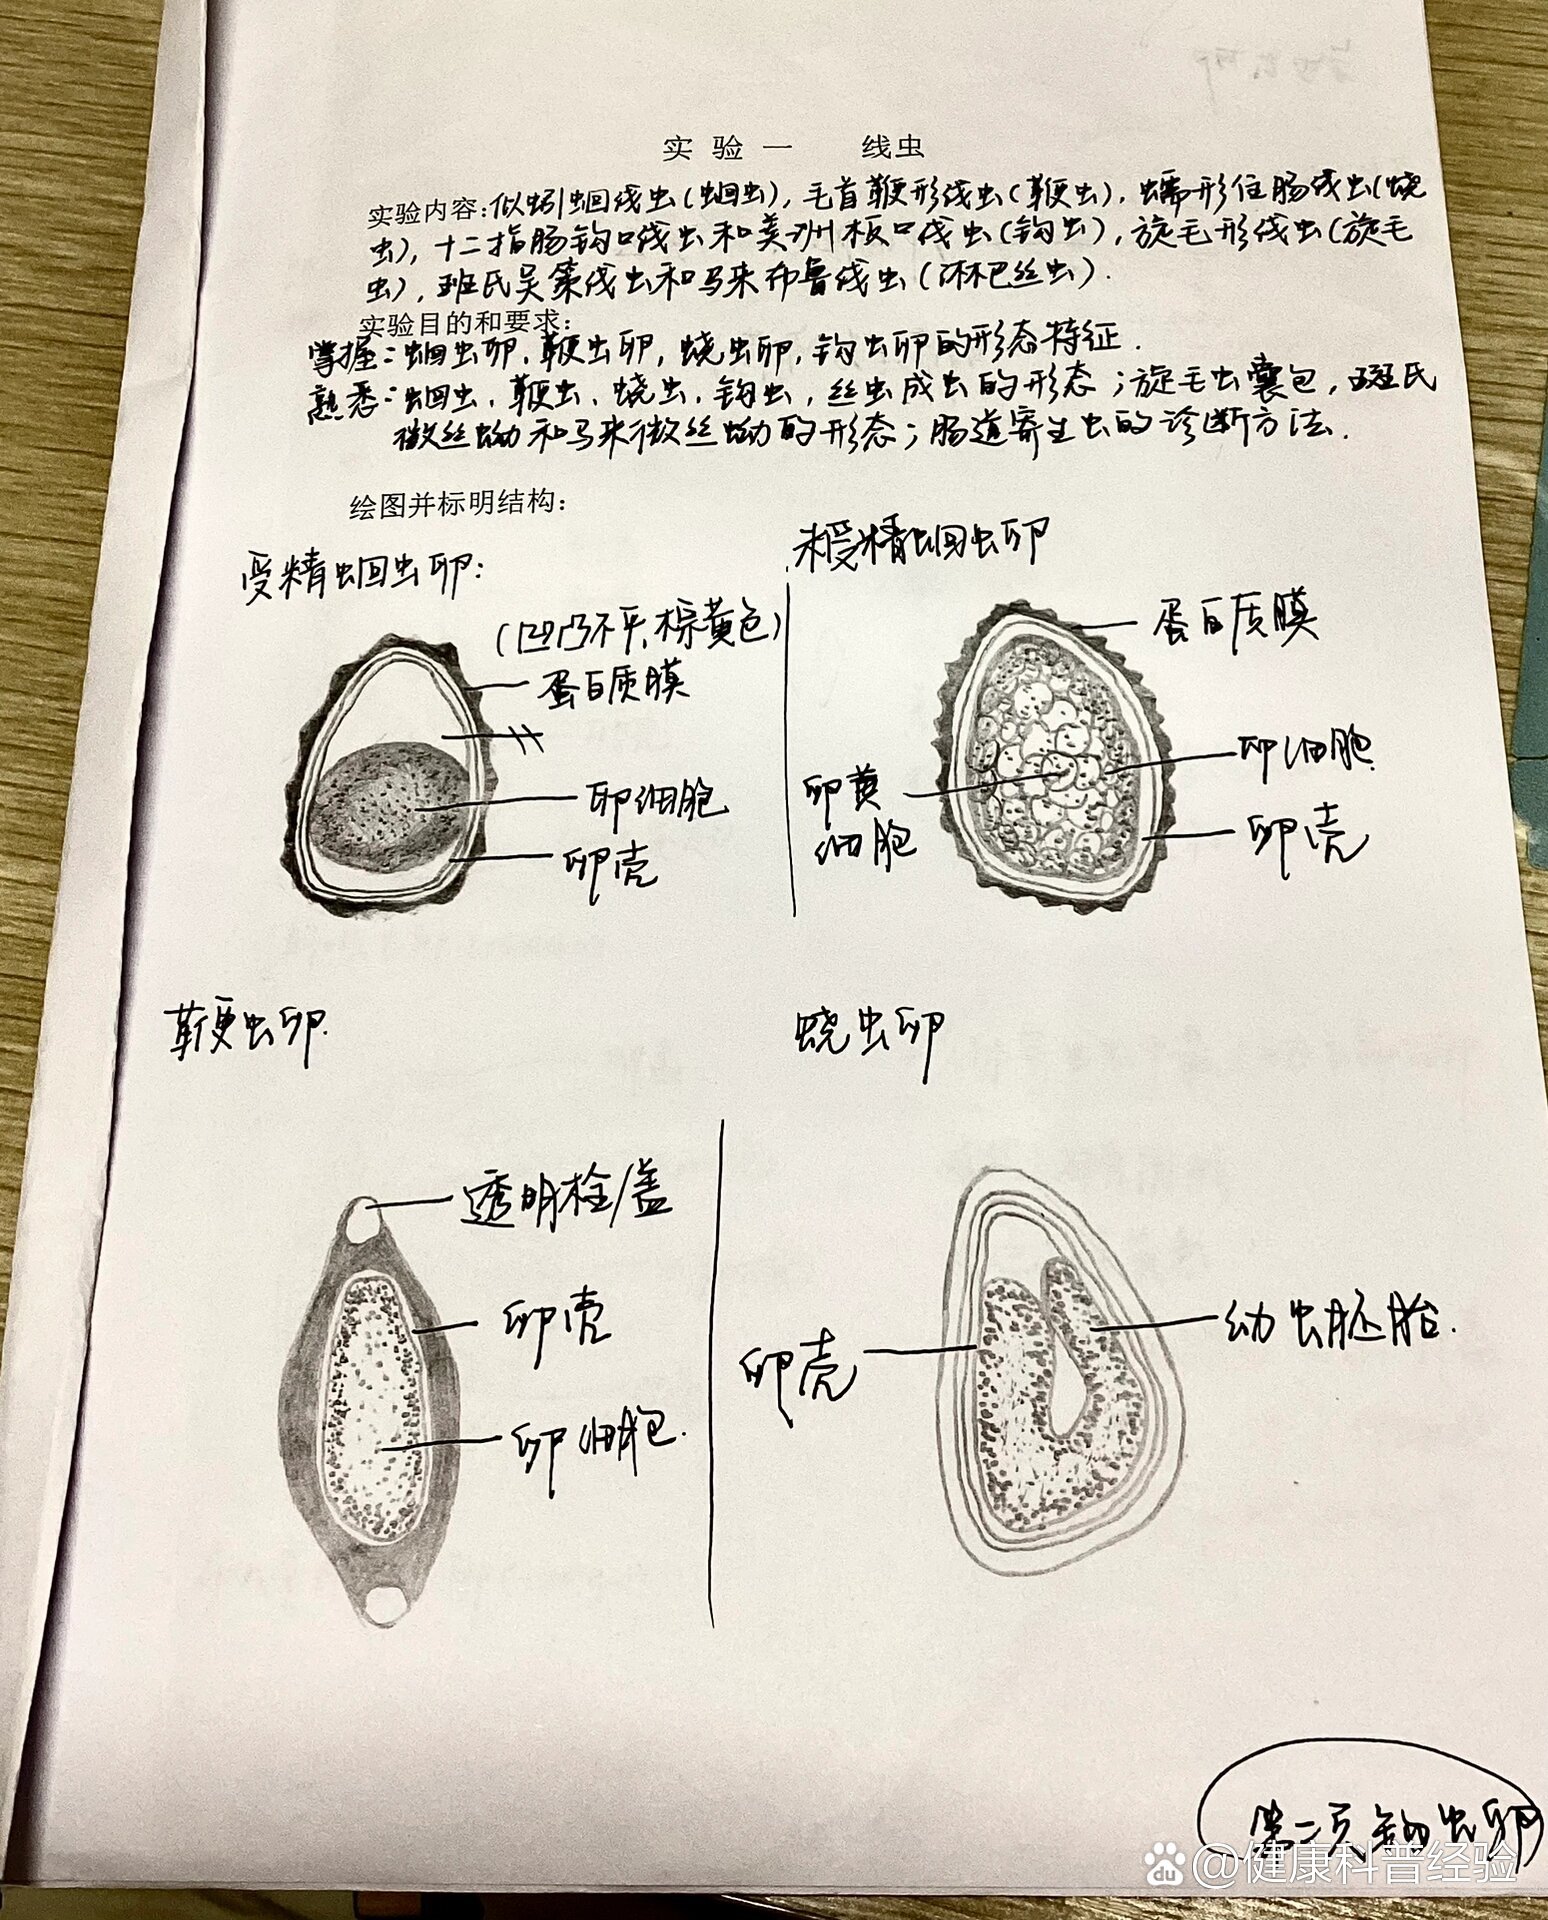 实验一 线虫
实验内容:似蚓蛔线虫(蛔虫),毛首鞭形线虫(鞭虫),蠕形住肠线虫(蛲
虫),十二指肠钩口线虫和美洲板口线虫(钩虫),旋毛形线虫(旋毛
虫),班氏吴策线虫和马来布鲁线虫(淋巴丝虫).
实验目的和要求:
掌握:蛔虫卵,鞭虫卵,蛲虫卵,钩虫卵的形态特征.
熟悉:蛔虫、鞭虫、蛲虫、钩虫,丝虫成虫的形态;旋毛虫囊包,班氏
微丝蚴和马来微丝蚴的形态;肠道寄生虫的诊断方法.
绘图并标明结构:
受精蛔虫卵:
(凹凸不平,棕黄色)
蛋白质膜
卵细胞
卵壳
未受精蛔虫卵
蛋白质膜
卵细胞
卵黄
细胞
卵壳
鞭虫卵.
透明栓/盖
卵壳
卵细胞.
蛲虫卵
卵壳
幼虫胚胎.
第二页钩虫卵
du @健康科普经验